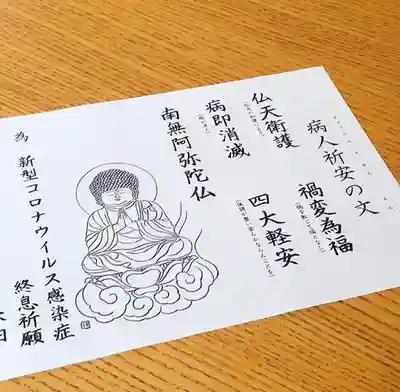 病人祈安の文
仏天衛護 禍変為福
病即消滅 四大軽安
南無阿弥陀仏
為 新型コロナウイルス感染症
終息祈願